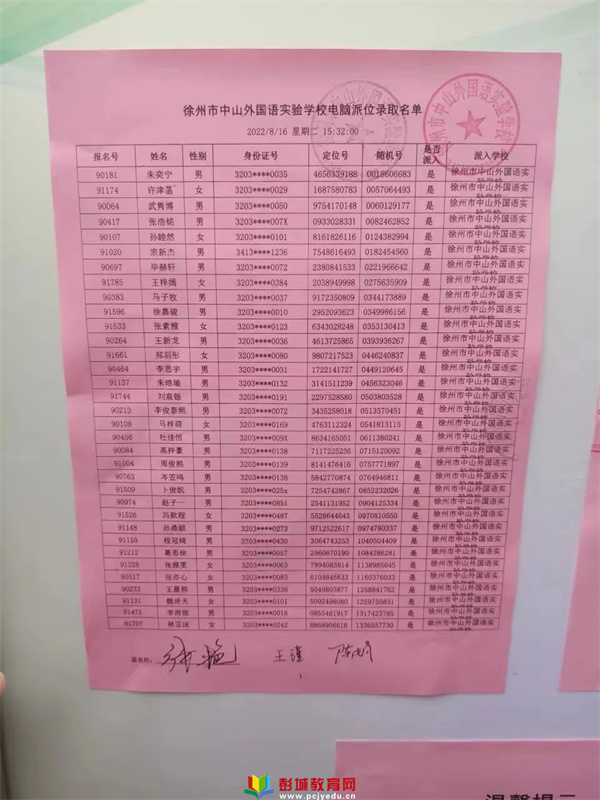 徐州市中山外国语实验学校电脑派位录取名单
2022/8/16 星期二 15:32:00
报名号 姓名 性别 身份证号 定位号 随机号 是否派入 派入学校
90181 朱奕宁 男 3203****0035 4656339188 0018606683 是 徐州市中山外国语实验学校
91174 许津菡 女 3203****0029 1687580783 0057064493 是 徐州市中山外国语实验学校
90064 武隽博 男 3203****0050 9754170148 0060129177 是 徐州市中山外国语实验学校
90417 张浩铭 男 3203****007X 0933028331 0082462852 是 徐州市中山外国语实验学校
90107 孙睦然 女 3203****0101 8161826116 0124382994 是 徐州市中山外国语实验学校
91020 宗新杰 男 3413****1236 7548616493 0182454560 是 徐州市中山外国语实验学校
90697 毕赫轩 男 3203****0072 2380841533 0221966642 是 徐州市中山外国语实验学校
91785 王梓嫣 女 3203****0384 2038949998 0275635909 是 徐州市中山外国语实验学校
90383 马子牧 男 3203****0037 9172350809 0344173889 是 徐州市中山外国语实验学校
91596 徐嘉骏 男 3203****0010 2952093623 0349986156 是 徐州市中山外国语实验学校
91533 张素雅 女 3203****0123 6343028248 0353130413 是 徐州市中山外国语实验学校
90264 王新龙 男 3203****0036 4613725865 0393936267 是 徐州市中山外国语实验学校
91661 郑羽彤 女 3203****0080 9807217523 0446240837 是 徐州市中山外国语实验学校
90464 李思宇 男 3203****0031 1722141727 0449120645 是 徐州市中山外国语实验学校
91137 朱皓瑜 男 3203****0132 3141511239 0456323046 是 徐州市中山外国语实验学校
91744 刘宸铄 男 3203****0191 2297528580 0503803528 是 徐州市中山外国语实验学校
90213 李俊泰熙 男 3203****0072 3435258018 0513570451 是 徐州市中山外国语实验学校
90108 马梓萌 女 3203****0169 4763112324 0541813115 是 徐州市中山外国语实验学校
90456 杜佳恒 男 3203****009X 8634165051 0611380241 是 徐州市中山外国语实验学校
90084 高梓豪 男 3203****0138 7117225236 0715120092 是 徐州市中山外国语实验学校
91004 周俊熙 男 3203****0139 8141476416 0757771897 是 徐州市中山外国语实验学校
90763 岑笠鸣 男 3203****0158 5842770874 0764946811 是 徐州市中山外国语实验学校
91509 卜俊凯 男 3203****025x 7254742867 0852232026 是 徐州市中山外国语实验学校
90974 赵子一 男 3203****0851 2541131952 0904125334 是 徐州市中山外国语实验学校
91526 冯歌程 女 3203****0487 5528644643 0970810550 是 徐州市中山外国语实验学校
91148 孙鼎硕 男 3203****0273 9712522617 0974780337 是 徐州市中山外国语实验学校
91159 程冠绮 男 3203****0430 3064743253 1040504409 是 徐州市中山外国语实验学校
91212 葛思徐 男 3203****0057 2960670190 1084286281 是 徐州市中山外国语实验学校
91328 张雅雯 女 3203****0063 7994083814 1138985645 是 徐州市中山外国语实验学校
90517 张亦心 女 3203****0085 6104645633 1160376033 是 徐州市中山外国语实验学校
90233 王晨熙 男 3203****0336 5049803877 1258841762 是 徐州市中山外国语实验学校
91131 魏绮禾 女 3203****0101 5092498080 1259755831 是 徐州市中山外国语实验学校
91472 李尚恒 男 3203****0016 0855461917 1317423785 是 徐州市中山外国语实验学校
91397 林芷涵 女 3203****0242 8868906618 1326557730 是 徐州市中山外国语实验学校
签名栏：
王瑾
1
温馨提示
彭城教育网
www.pcjyedu.cn